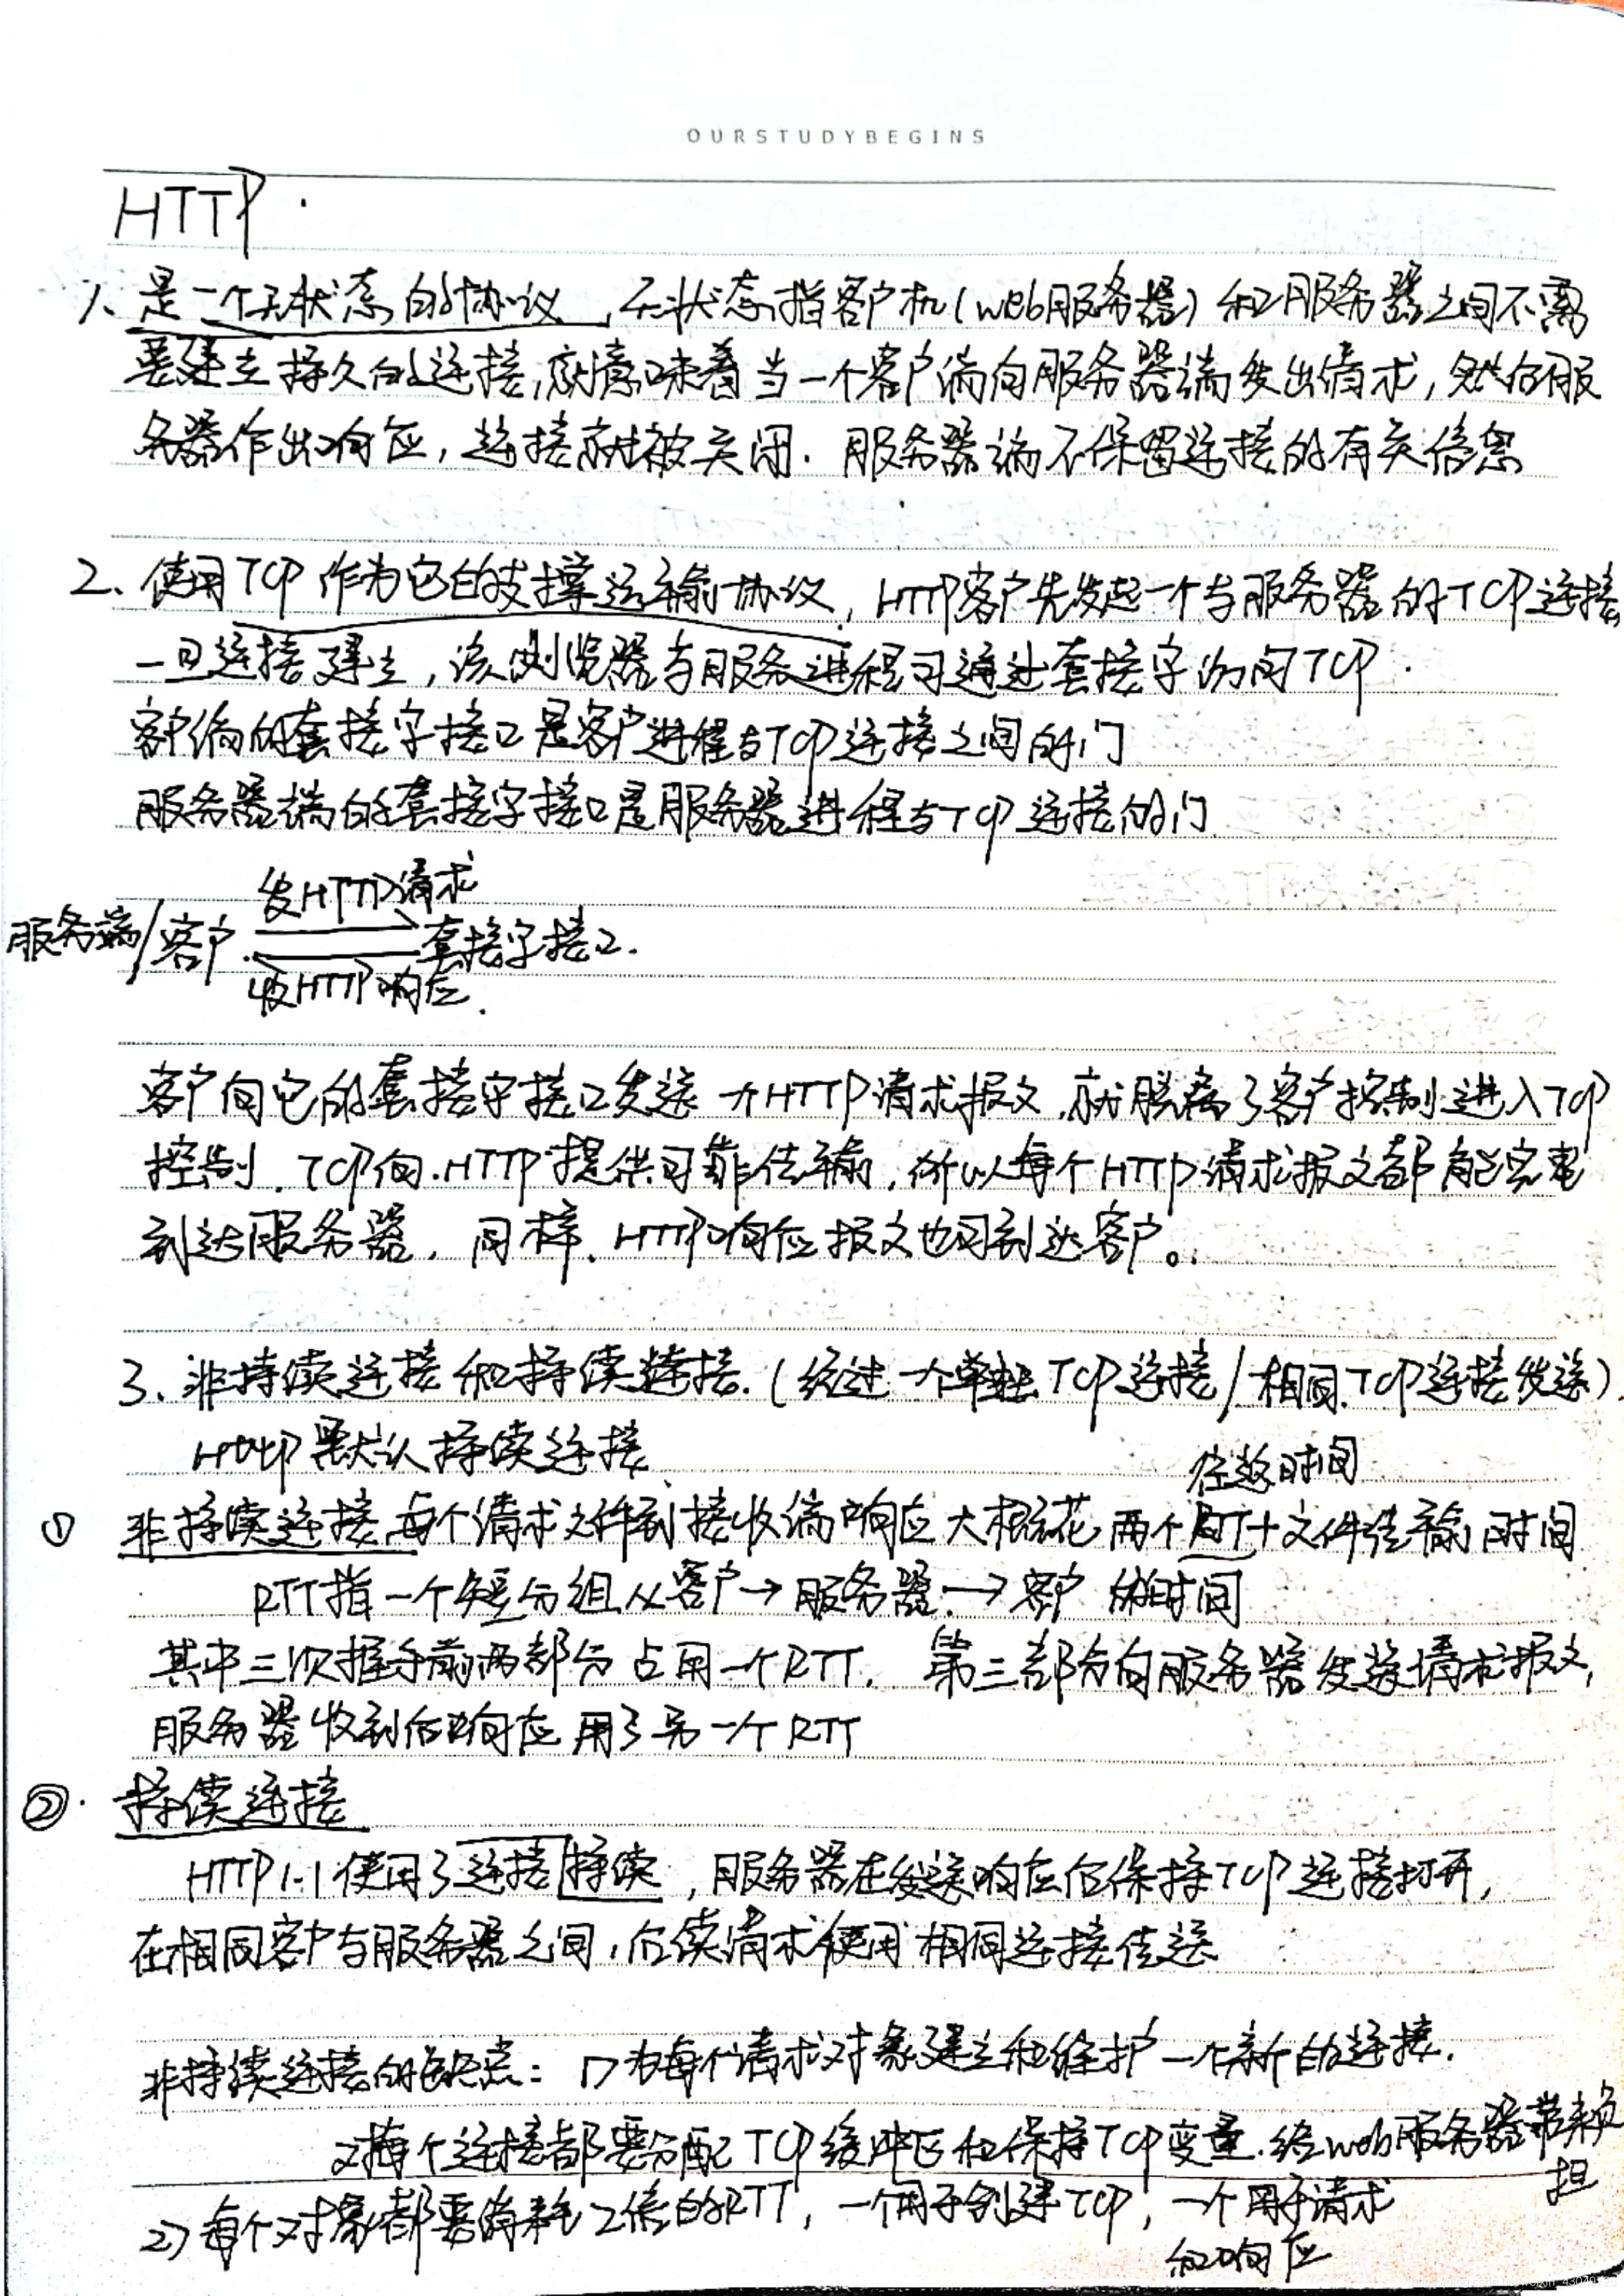 OURSTUDYBEGINS
HTTP.
1、是一个无状态的协议,无状态指客户机(web服务器)和服务器之间不需
要建立持久的连接,就意味着当一个客户端向服务器端发出请求,然后服
务器作出响应,连接就被关闭.服务器端不保留连接的有关信息
2、使用TCP作为它的支撑运输协议,HTTP客户先发起一个与服务器的TCP连接
一旦连接建立,该浏览器与服务进程可通过套接字访问TCP.
客户端的套接字接口是客户进程与TCP连接之间的门
服务器端的套接字接口是服务器进程与TCP连接的门
发HTTP请求
服务端/客户 套接字接口.
收HTTP响应.
客户向它的套接字接口发送一个HTTP请求报文,就脱离了客户控制进入TCP
控制.TCP向HTTP提供可靠传输,所以每个HTTP请求报文都能完整
到达服务器,同样,HTTP响应报文也可到达客户。
3、非持续连接和持续连接.(经过一个单独TCP连接/相同TCP连接发送).
Http默认持续连接
往返时间
① 非持续连接每个请求文件到接收端响应大概花两个RTT+文件传输时间
RTT指一个短分组从客户→服务器→客户的时间
其中三次握手前两部分占用一个RTT,第三部分向服务器发送请求报文,
服务器收到后响应用了另一个RTT
②.持续连接
HTTP1.1使用了连接持续,服务器在发送响应后保持TCP连接打开,
在相同客户与服务器之间,后续请求使用相同连接传送
非持续连接的缺点:1)为每个请求对象建立和维护一个新的连接.
对每个连接都要分配TCP缓冲区和保持TCP变量.给web服务器带来负
担
2)每个对象都要消耗2倍的RTT,一个用于创建TCP,一个用于请求
和响应